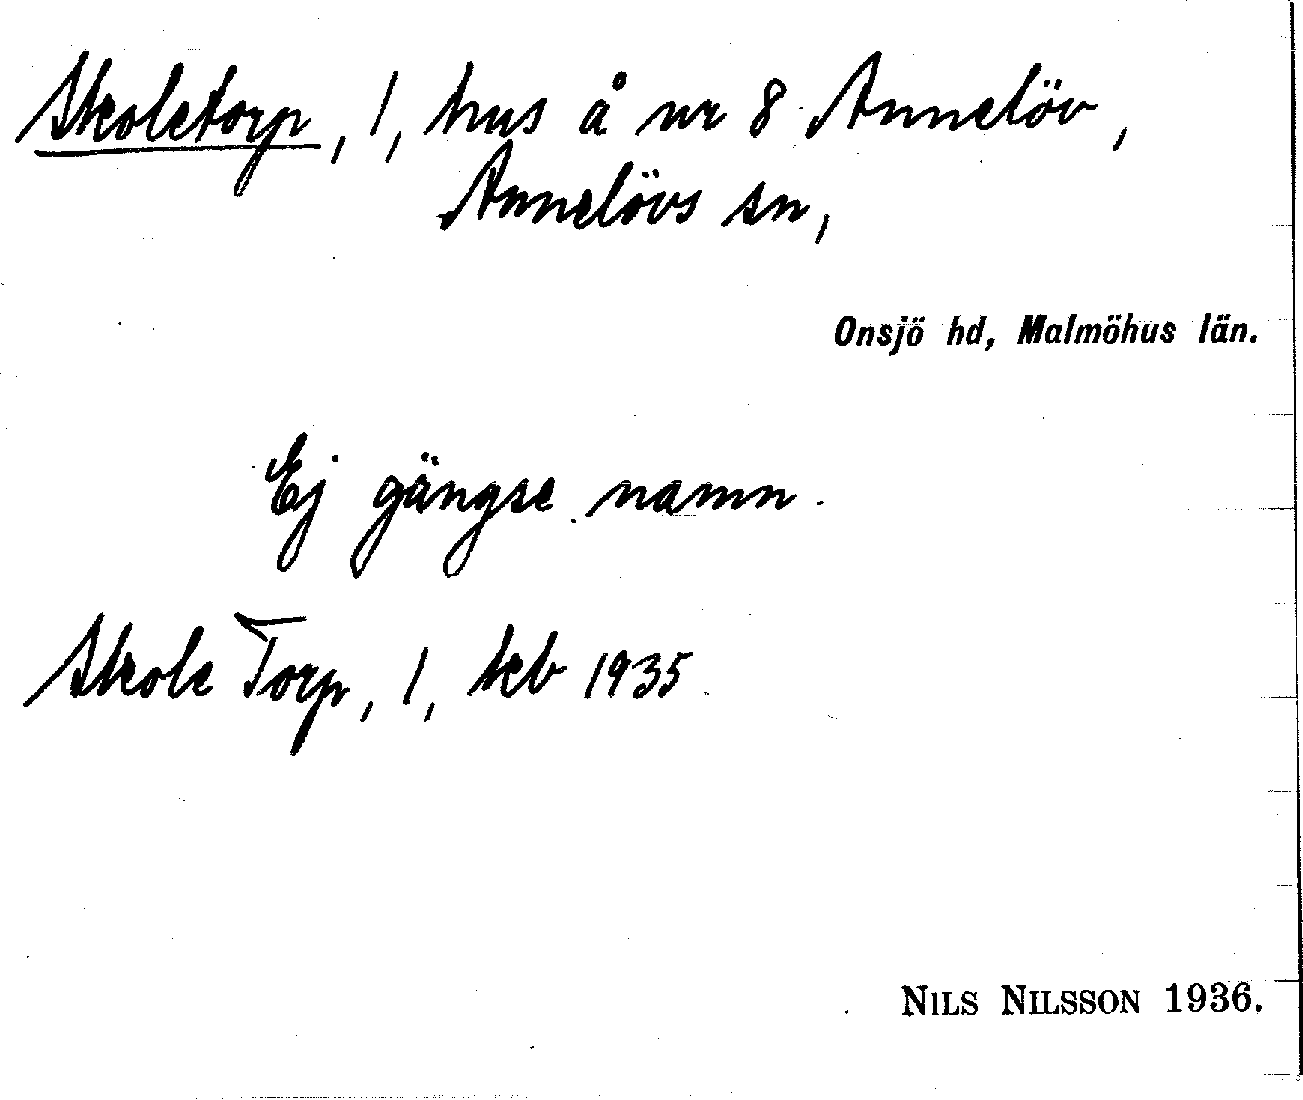 Skoletorp, 1, hus å nr 8 Annelöv,
Annelövs sn,
Onsjö hd, Malmöhus län.
Ej gängse namn.
Skole Torp, 1, kb 1935.
NILS NILSSON 1936.